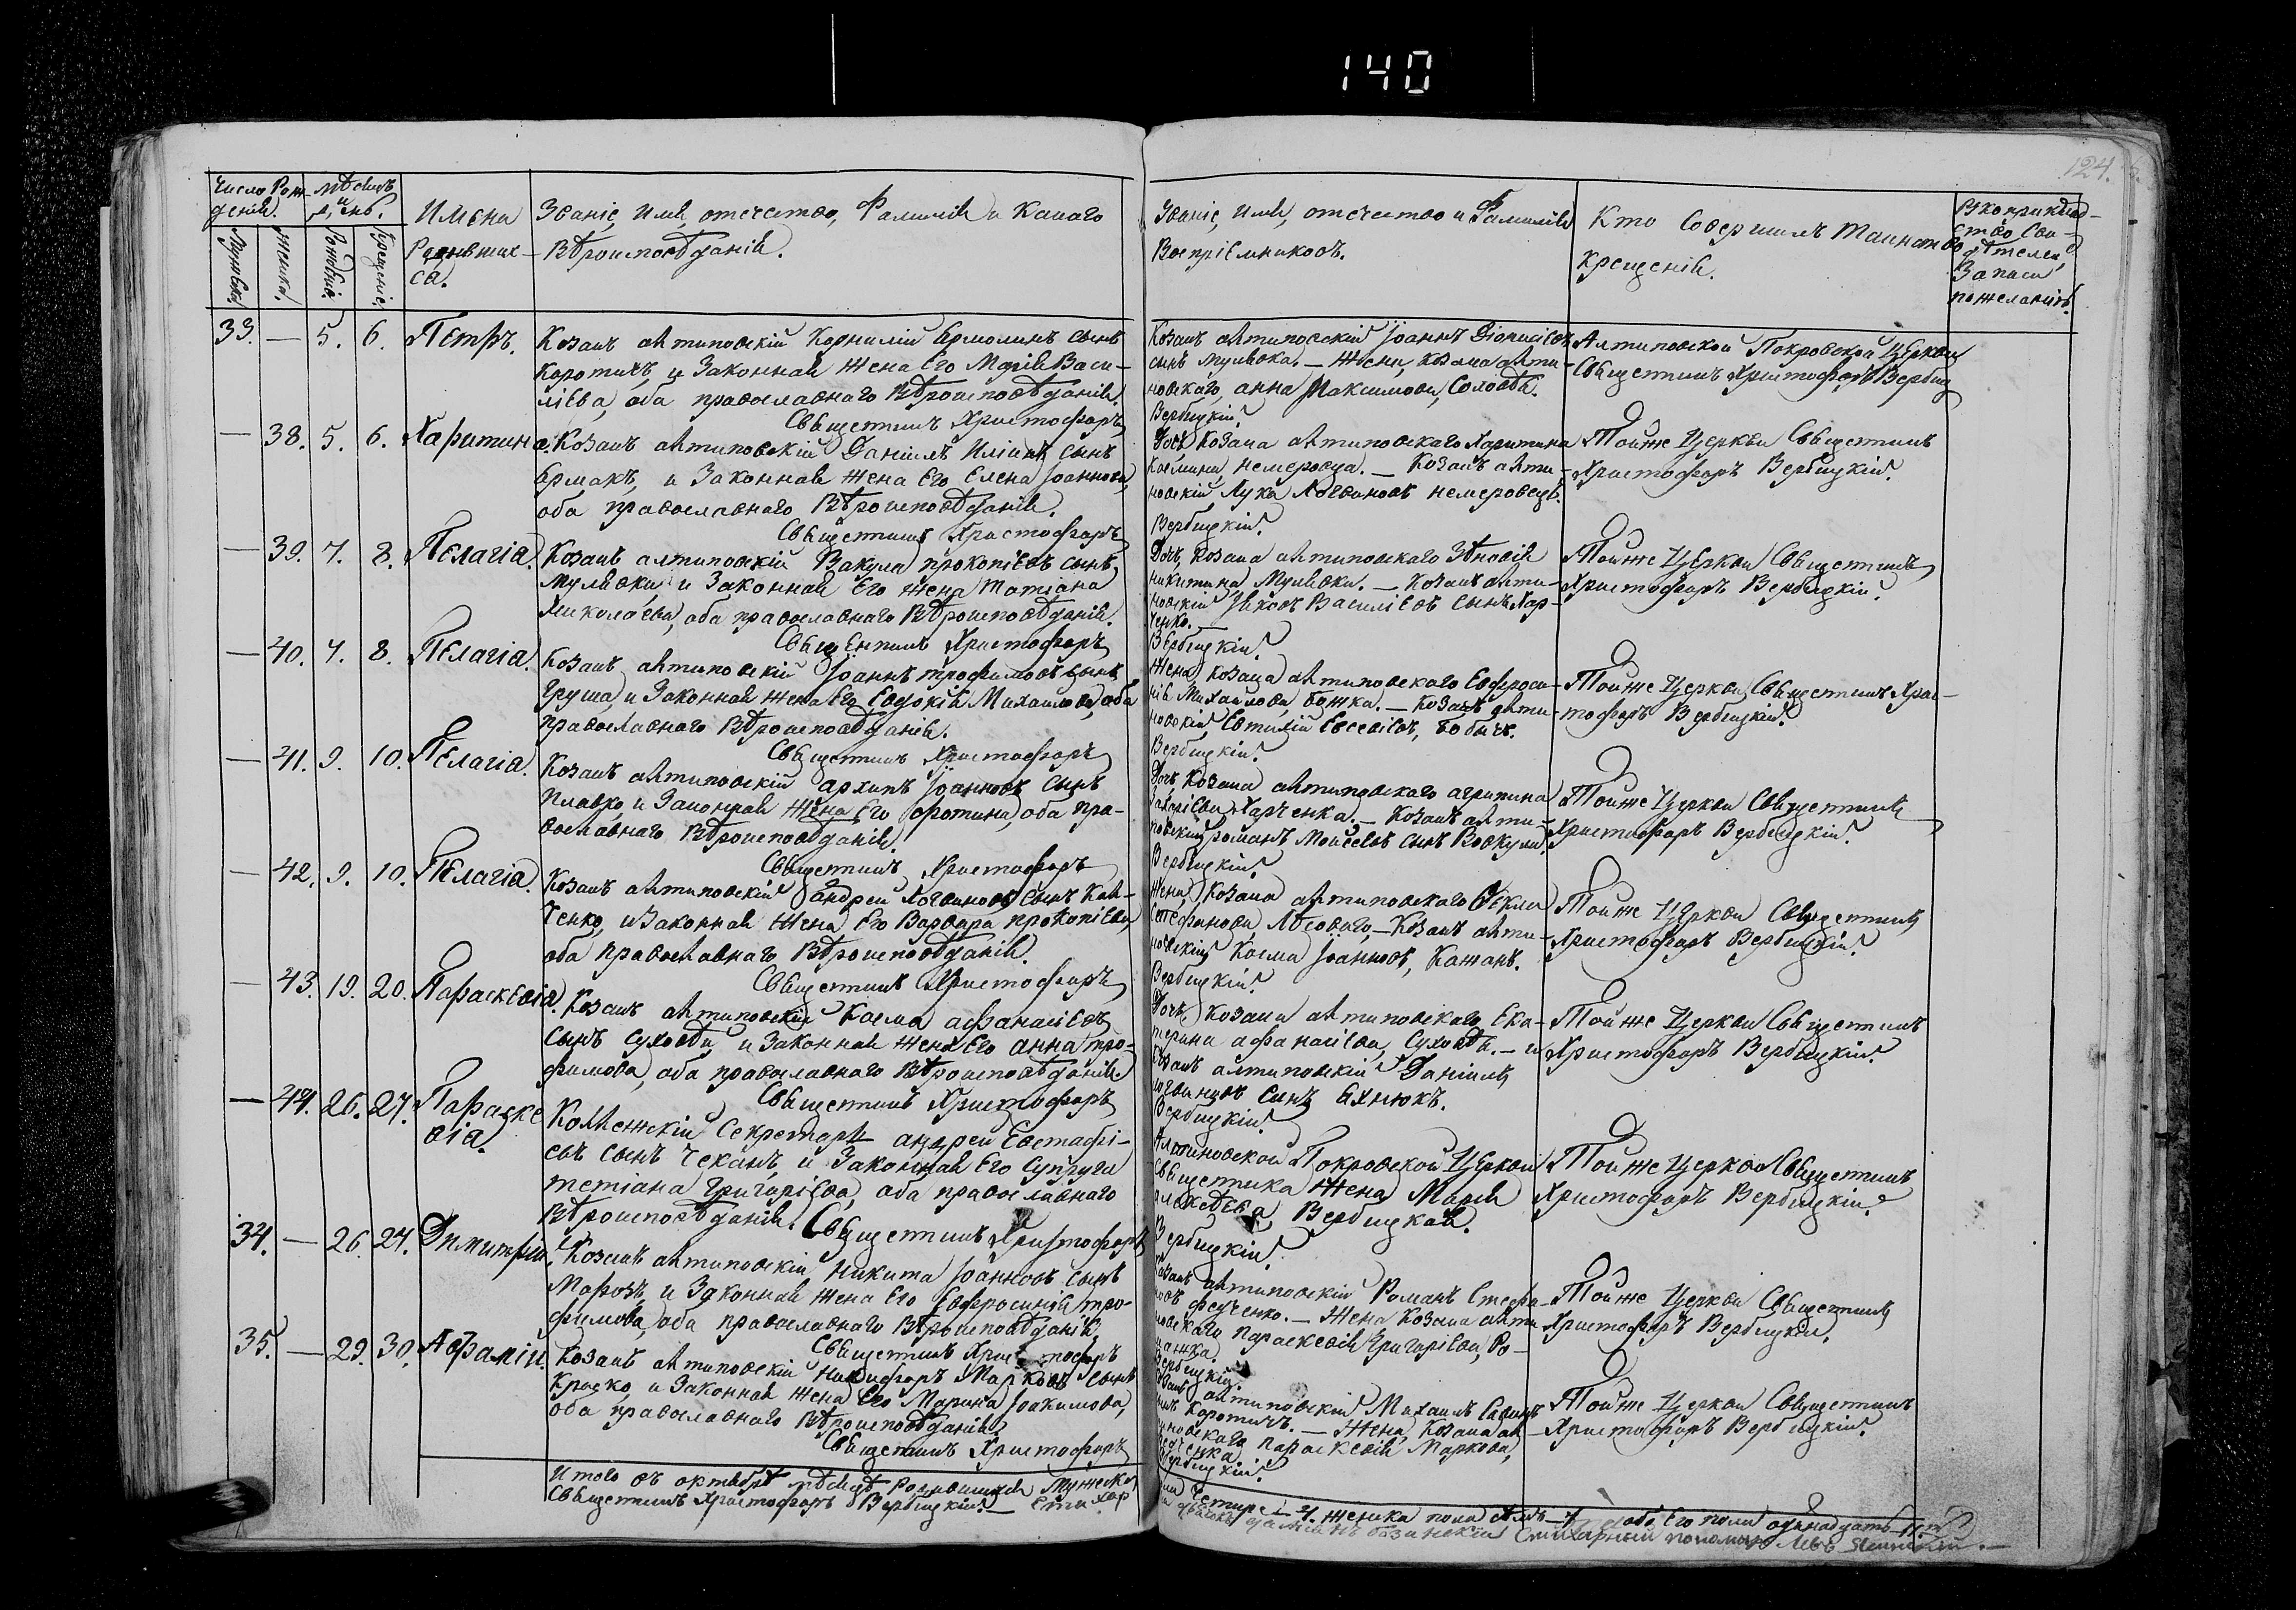 140
124.
Число Рож-
деній.
Мѣсяцъ
и
день.
Мужска.
Женска.
Рожденіе.
Крещеніе.
Имена
Родивших-
ся.
Званіе, имя, отечество, Фамилія и какаго
Вѣроисповѣданія.
Званіе, имя, отечество и Фамилія
Воспріемниковъ.
Кто Совершилъ таинство
крещенія.
Рукоприклад-
ство Сви-
дѣтелей
Записи
пожеланію.
33. — 5. 6. Петръ.
Козакъ Антиповскій Корнилій Ермолинъ сынъ
Коротичъ, и Законная Жена Его Марія Васи-
ліева, оба православнаго Вѣроисповѣданія.
Священникъ Христофоръ
Козакъ Антиповскій Іоаннъ Діонисіевъ
сынъ Мулявка. — Жена козака Анти-
повскаго, Анна Максимова, Соловья.
Вербицкій.
Антиповской Покровской Церкви
Священникъ Христофоръ Вербиц
— 38. 5. 6. Харитина.
Козакъ Антиповскій Даніилъ Иліинъ сынъ
Ермакъ, и Законная Жена Его Елена Іоаннова,
оба православнаго Вѣроисповѣданія.
Священникъ Христофоръ
Дочь Козака Антиповскаго Харитина
Космина Немеровца. — Козакъ Анти-
повскій Лука Логвиновъ Немеровецъ.
Вербицкій.
Тойже Церкви Священникъ
Христофоръ Вербицкій.
— 39. 7. 8. Пелагія.
Козакъ Антиповскій Вакула Прокопіевъ сынъ
Мулявка, и Законная Его Жена Татіана
Николаева, оба православнаго Вѣроисповѣданія.
Священникъ Христофоръ
Дочь Козака Антиповскаго Зѣновія
Никитина Мулявки. — Козакъ Анти-
повскій Іяковъ Василіевъ сынъ Хар-
ченко. —
Вербицкій.
Тойже Церкви Священникъ
Христофоръ Вербицкій.
— 40. 7. 8. Пелагія.
Козакъ Антиповскій Іоаннъ Трофимовъ сынъ
Груша, и Законная Жена Его Евдокія Михаилова, оба
православнаго Вѣроисповѣданія.
Священникъ Христофоръ
Жена Козака Антиповскаго Евфроси-
нія Михайлова, Божка. — Козакъ Анти-
повскій Евтихій Евсевіевъ, Бобычъ.
Вербицкій.
Тойже Церкви Священникъ Хрис-
тофоръ Вербицкій.
— 41. 9. 10. Пелагія.
Козакъ Антиповскій Архипъ Іоанновъ сынъ
Плавко, и Законная Жена Его Фотина, оба пра-
вославнаго Вѣроисповѣданія.
Священникъ Христофоръ
Дочь Козака Антиповскаго Агрипина
Захаріева Харченка. — Козакъ Анти-
повскій Романъ Моисеевъ сынъ Вовкула.
Вербицкій.
Тойже Церкви Священникъ
Христофоръ Вербицкій.
— 42. 9. 10. Пелагія.
Козакъ Антиповскій Андрей Логвиновъ сынъ
ченко, и Законная Жена Его Варвара Прокопіева,
оба православнаго Вѣроисповѣданія.
Священникъ Христофоръ
Жена Козака Антиповскаго Ѳекла
Стефанова, Лѣсоваго, — Козакъ Анти-
повскій Косма Іоанновъ, Кажанъ.
Вербицкій.
Тойже Церкви Священникъ
Христофоръ Вербицкій.
— 43. 19. 20. Параскевія.
Козакъ Антиповскій Косма Афанасіевъ
сынъ Суховѣй и Законная Жена Его Анна Тро-
фимова, оба православнаго Вѣроисповѣданія
Священникъ Христофоръ
Дочь Козака Антиповскаго Ека-
терина Афанасіева, Суховѣя. — и
Козакъ Антиповскій Даніилъ
Логвиновъ Сынъ Яхнюкъ.
Вербицкій.
Тойже Церкви Священникъ
Христофоръ Вербицкій.
— 44. 26. 27. Параске
вія.
Коллежскій Секретарь Андрей Евстафі-
евъ сынъ Чеканъ, и Законная Его Супруга
Тетіана Григоріева, оба православнаго
Вѣроисповѣданія. Священникъ Христофоръ
Антиповской Покровской Церкви
Священника Жена Марія
Алексѣева Вербицкая.
Вербицкій.
Тойже Церкви Священникъ
Христофоръ Вербицкій.
34. — 26. 27. Димитрій.
Козакъ Антиповскій Никита Іоанновъ сынъ
Морозъ, и Законная Жена Его Евфросинія Тро-
фимова, оба православнаго Вѣроисповѣданія,
Священникъ Христофоръ
Козакъ Антиповскій Романъ Стефа-
новъ Федченко. — Жена Козака Анти
повскаго Параскевія Григоріева, Ро-
Вербицкій.
Тойже Церкви Священникъ
Христофоръ Вербицкій.
35. — 29. 30. Афанасій.
Козакъ Антиповскій Никифоръ Марковъ сынъ
Краско, и Законная Жена Его Марина Іоакимова,
оба православнаго Вѣроисповѣданія.
Священникъ Христофоръ
Козакъ Антиповскій Михаилъ Саввинъ
сынъ Коротичъ. — Жена Козака Ан-
типовскаго Параскевія Маркова,
Вербицкій.
Тойже Церкви Священникъ
Христофоръ Вербицкій.
Итого въ октябрѣ мѣсяцѣ Родившихся Мужеска
пола Четыре — 4. Женска пола — 7 обоего пола одинадцать — 11.
Священникъ Христофоръ Вербицкій. —
Стихарный пономарь Левъ